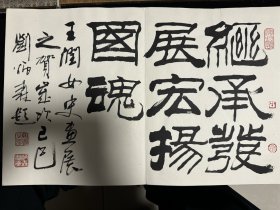 繼承發
展宏揚
國魂
王闓女史畫展
之賀歲次己巳
劉炳森題